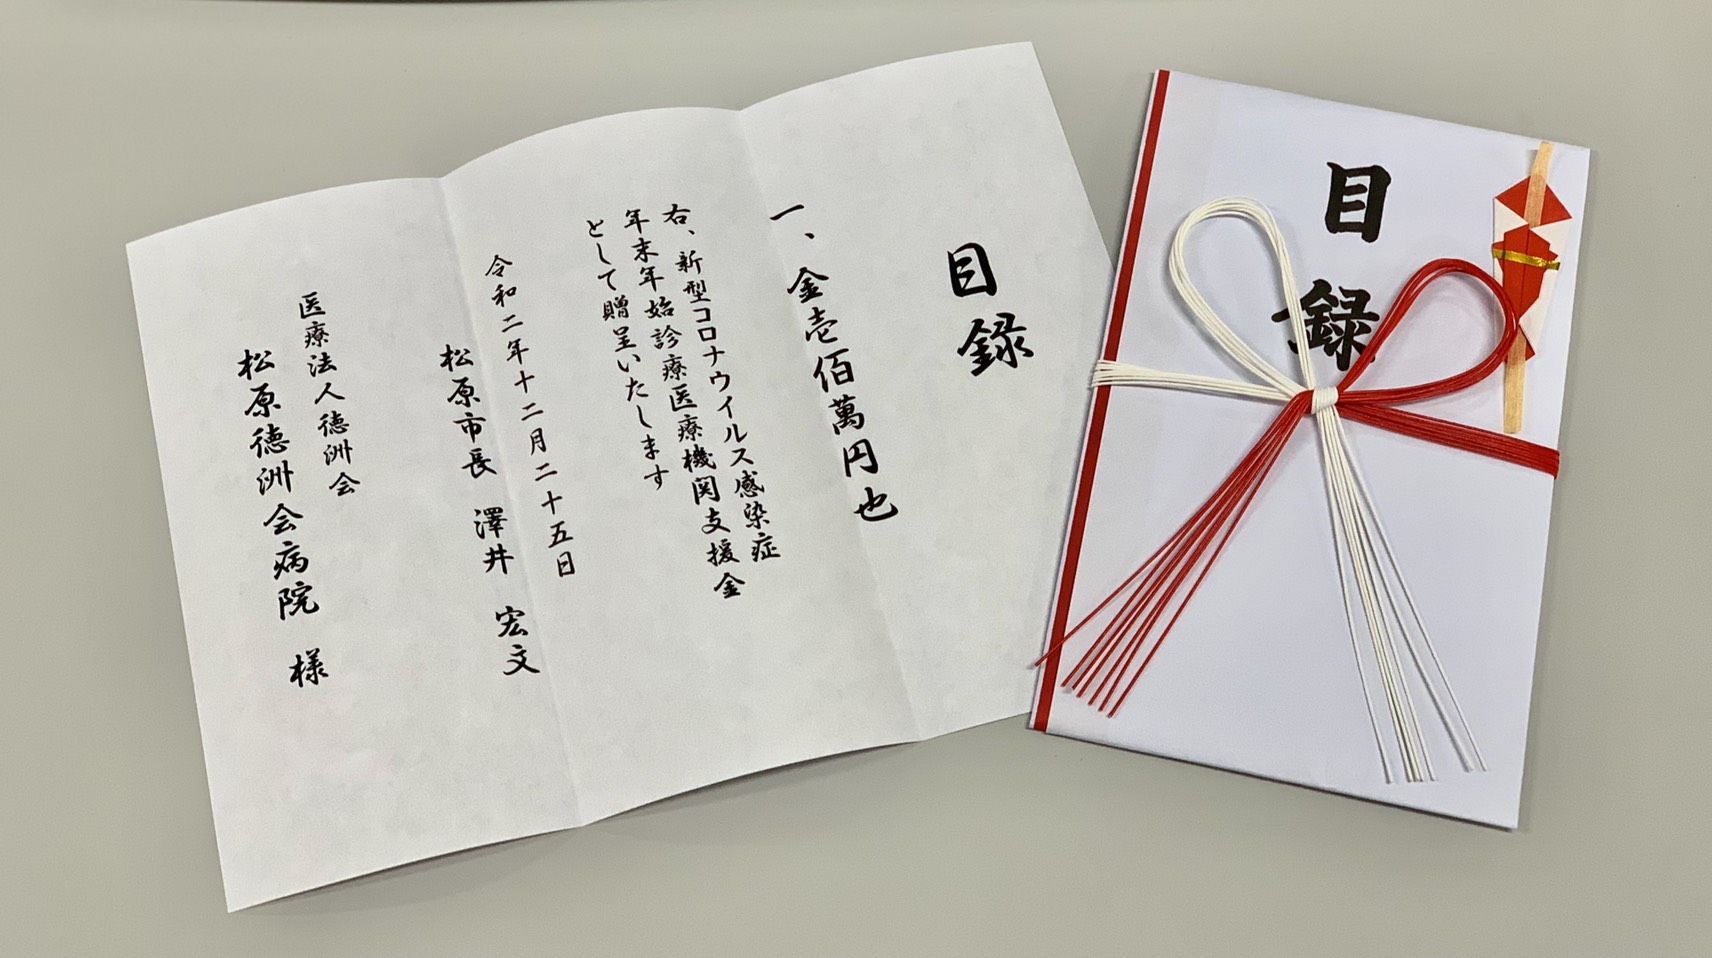 目録
一、金壱佰萬円也
右、新型コロナウイルス感染症
年末年始診療医療機関支援金
として贈呈いたします
令和二年十二月二十五日
松原市長 澤井 宏文
医療法人徳洲会
松原徳洲会病院 様
目録